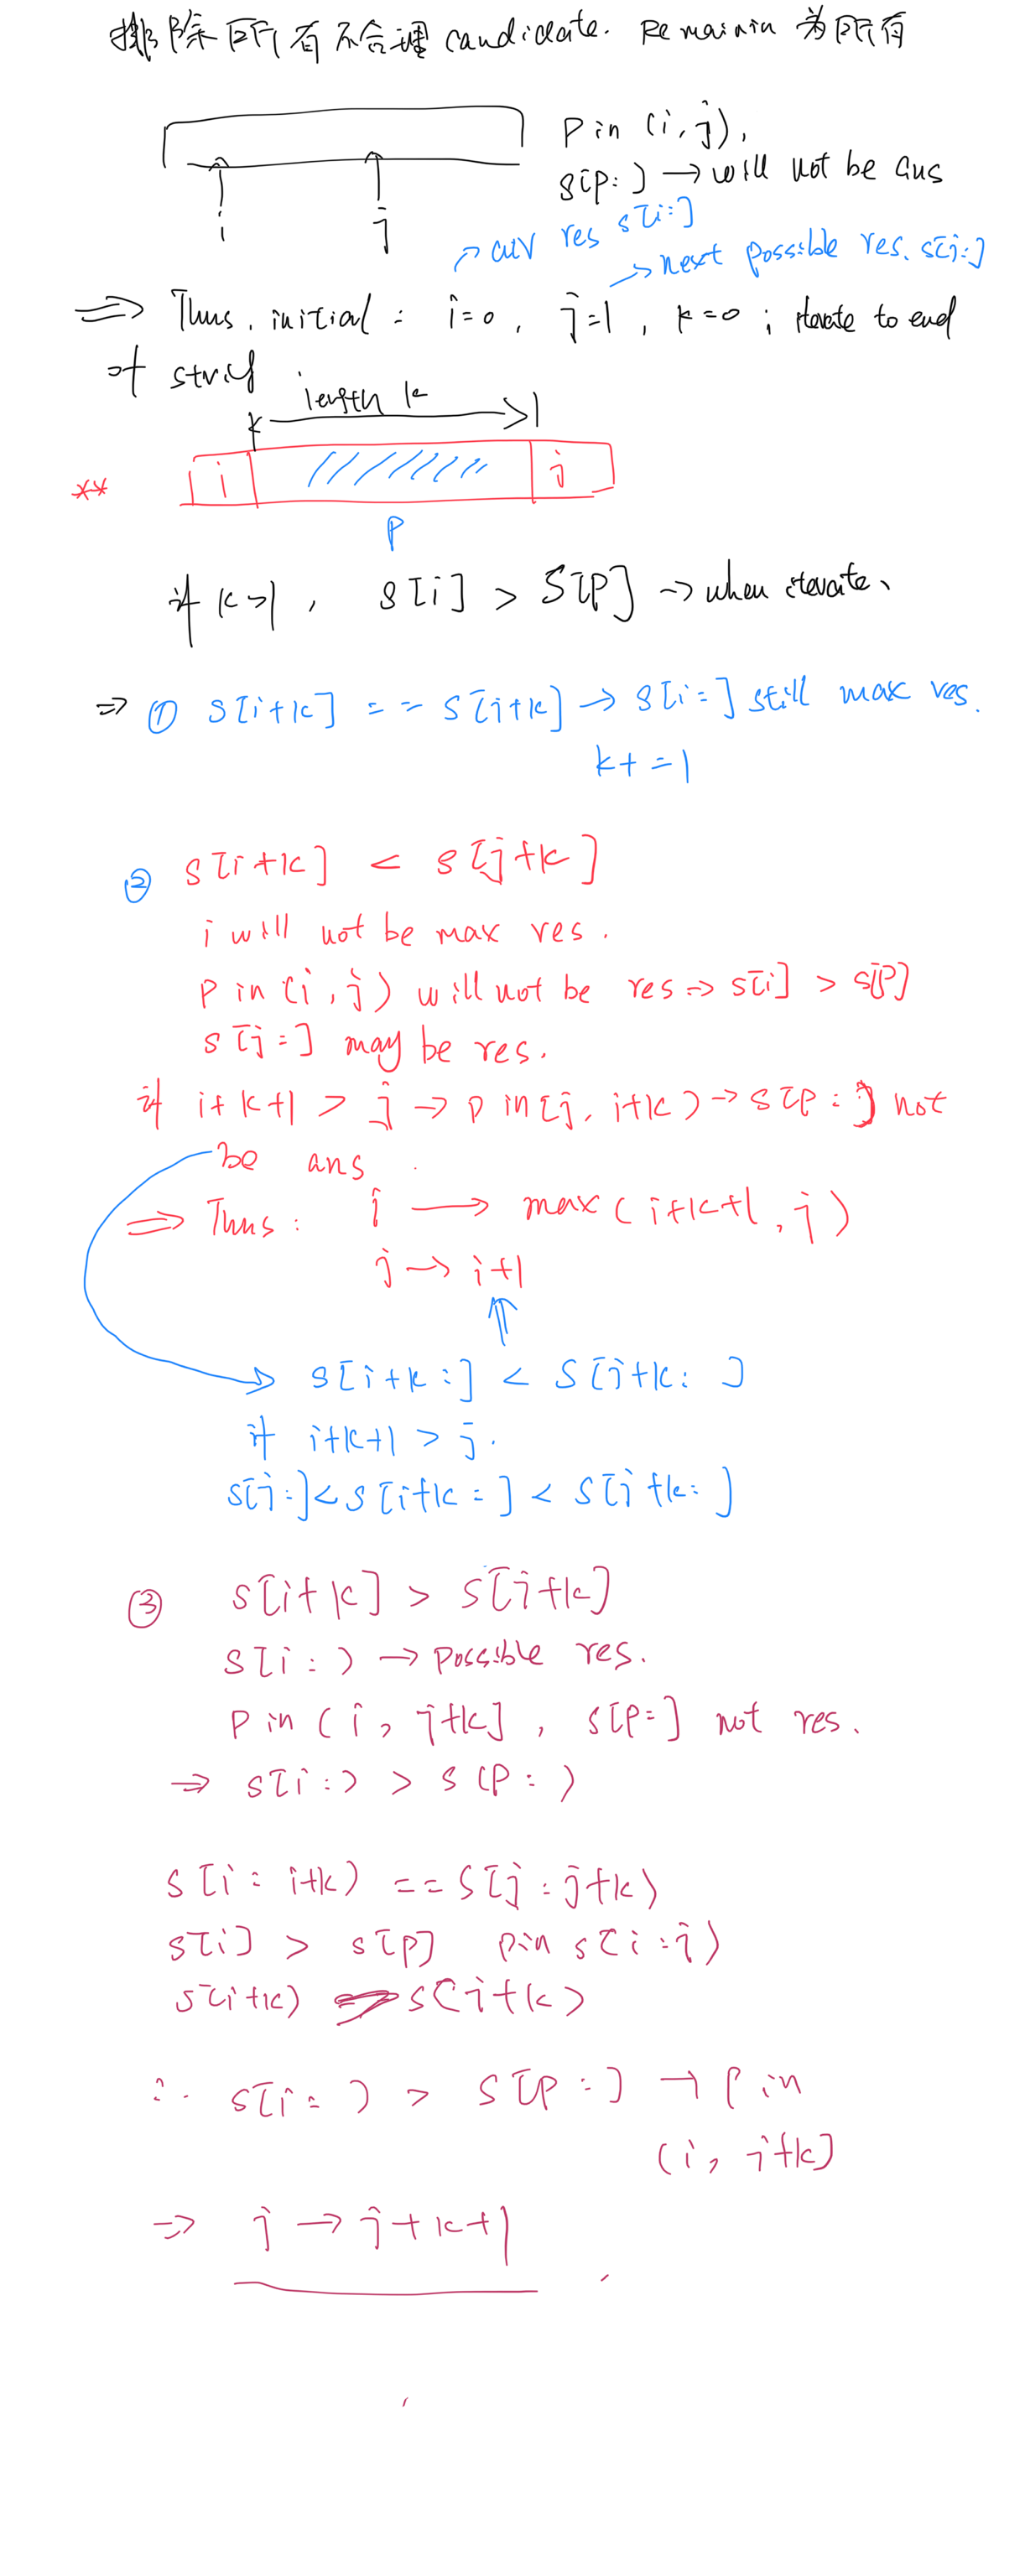 排除所有不合理 candidate. Remainin 为所有
p in (i, j),
s[p:] → will not be ans
i
j
cur res s[i:]
next possible res. s[j:]
⇒ Thus, initial : i=0, j=1, k=0 ; iterate to end
of string.
length k
** i j
p
if k>1, s[i] > s[p] → when iterate.
⇒ ① s[i+k] == s[j+k] → s[i:] still max res.
k+=1
② s[i+k] < s[j+k]
i will not be max res.
p in (i, j) will not be res ⇒ s[i] > s[p]
s[j:] may be res.
if i+k+1 > j → p in [j, i+k) → s[p:] not
be ans.
⇒ Thus: i → max(i+k+1, j)
j → i+1
s[i+k:] < s[j+k:]
if i+k+1 > j.
s[j:] < s[i+k:] < s[j+k:]
③ s[i+k] > s[j+k]
s[i:) → possible res.
p in (i, j+k], s[p:] not res.
⇒ s[i:) > s(p:)
s[i: i+k) == s[j: j+k)
s[i] > s[p] p in s(i:j)
s(i+k) s(j+k)
∴ s[i:) > s[p:] → p in
(i, j+k]
⇒ j → j+k+1